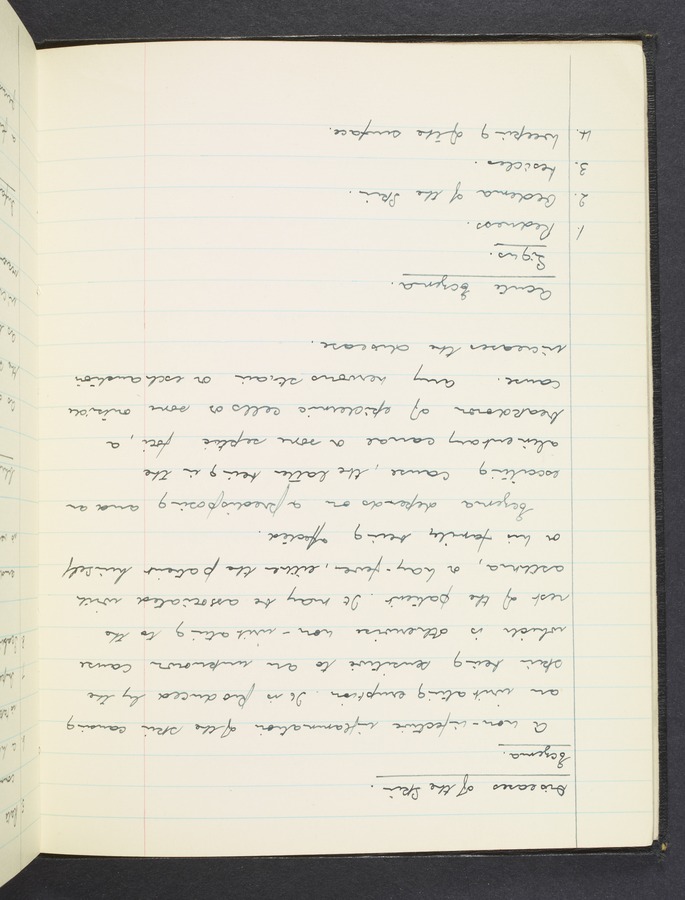 Diseases of the Skin.
Eczema.
A non-infective inflammation of the skin causing
an irritating eruption. It is produced by the
skin being sensitive to an unknown cause
which is otherwise non-irritating to the
rest of the patient. It may be associated with
asthma, or hay-fever, either the patient himself
or his family being affected.
Eczema depends on a predisposing and an
exciting cause, the latter being in the
alimentary canal or some septic foci, a
breakdown of epidermic cells or some
cause. any nervous strain or exhaustion
increases the disease.
Acute Eczema.
Signs.
1. Redness.
2. Oedema of the Skin.
3. Vesicles.
4. Weeping of the surface.